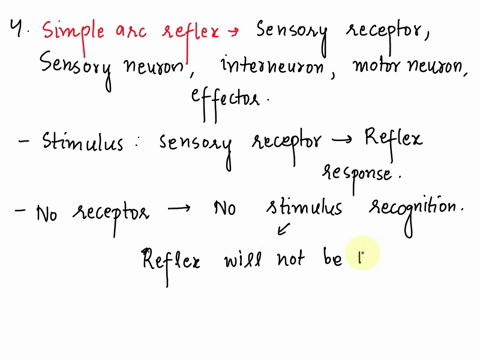 4. Simple arc reflex → Sensory receptor,
Sensory neuron, interneuron, motor neuron,
effector.
- Stimulus : sensory receptor → Reflex
response.
- No receptor → No stimulus recognition.
Reflex will not be